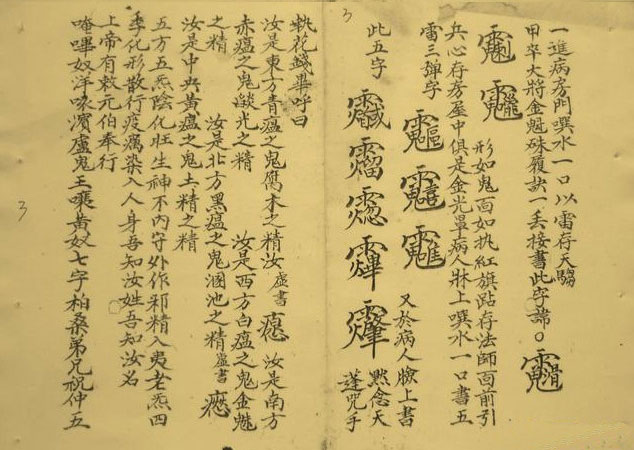 3
一進病房門噀水一口以雷存天騶
甲卒大將金魁硃履訣一丢接書此字諱○
形如鬼面如挑紅旗跕存法師面前引
兵心存房屋中俱是金光罩病人牀上噀水一口書五
雷三彈字 又於病人臉上書
此五字 默念天
蓬咒手
執花錢畢呼曰
汝是東方青瘟之鬼腐木之精汝虛書 汝是南方
赤瘟之鬼燄光之精 汝是西方白瘟之鬼金魁
之精 汝是北方黑瘟之鬼溷池之精虛書
汝是中央黃瘟之鬼土精之精
五方五炁陰化旺生神不內守外作邪精入夷老炁四
季化形散行疫癘染入人身吾知汝姓吾知汝名
上帝有敕元伯奉行
唵嗶奴洋 濱盧鬼王 黃奴七字柏桑弟兄祝仲五
3